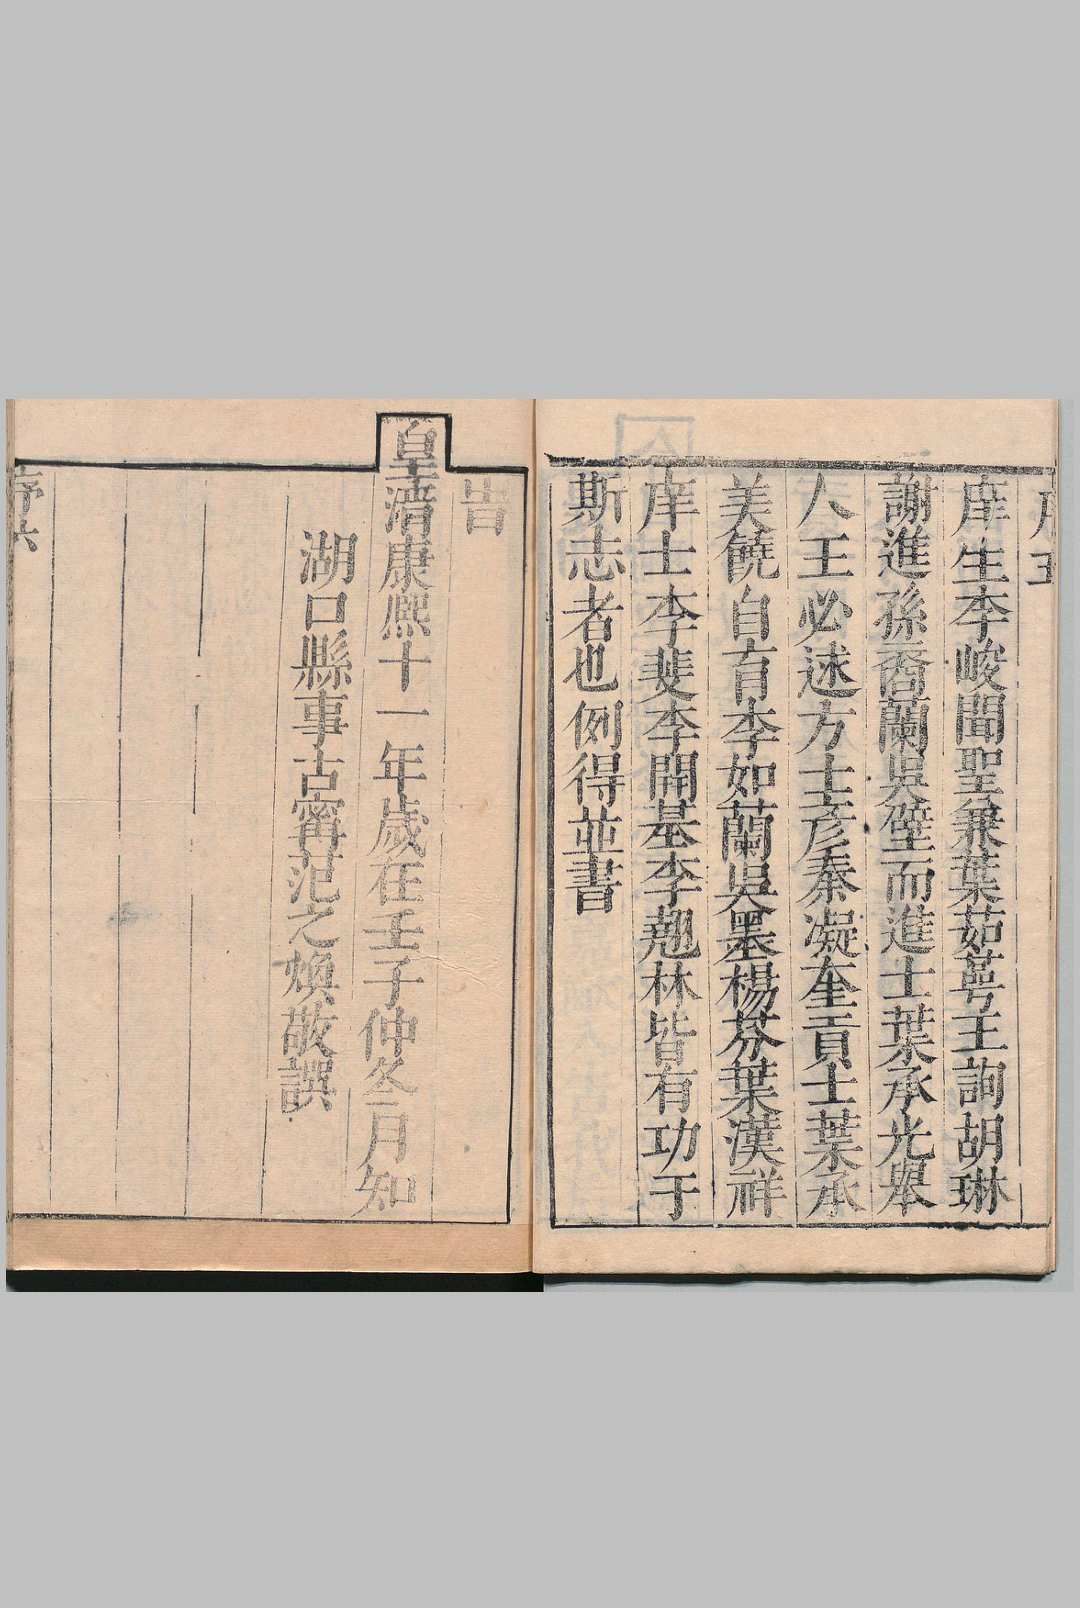 序五
庠生李峻聞聖兼葉茹萼王詢胡琳
謝進孫裔蘭吳瑩而進士葉承光舉
人王必述方士彦秦凝奎貢士葉承
美饒自育李如蘭吳墨楊芬葉漢祥
庠士李斐李開基李翹林皆有功于
斯志者也例得並書
旹
皇清康熙十一年歲在壬子仲冬月知
湖口縣事古甯范之煥敬譔
序六